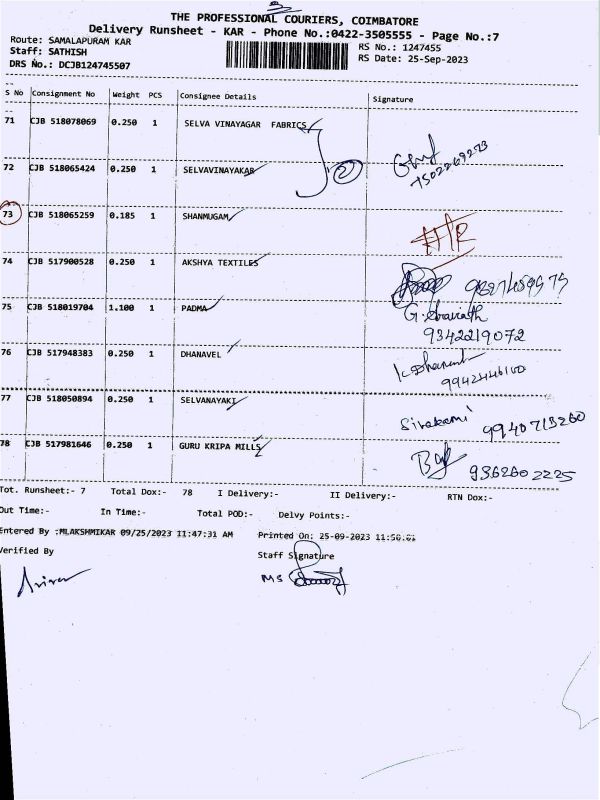 THE PROFESSIONAL COURIERS, COIMBATORE
Delivery Runsheet - KAR - Phone No.:0422-3505555 - Page No.:7
Route: SAMALAPURAM KAR
RS No.: 1247455
Staff: SATHISH
RS Date: 25-Sep-2023
DRS No.: DCJB124745507
S No Consignment No Weight PCS Consignee Details Signature
71 CJB 518078069 0.250 1 SELVA VINAYAGAR FABRICS
7502269273
72 CJB 518065424 0.250 1 SELVAVINAYAKAR 2
73 CJB 518065259 0.185 1 SHANMUGAM
74 CJB 517900528 0.250 1 AKSHYA TEXTILES
75 CJB 518019704 1.100 1 PADMA G.
9342219072
76 CJB 517948383 0.250 1 DHANAVEL K. Dhanavel
77 CJB 518050894 0.250 1 SELVANAYAKI Sivakami 9940713260
78 CJB 517981646 0.250 1 GURU KRIPA MILLS 9362602225
Tot. Runsheet:- 7 Total Dox:- 78 I Delivery:- II Delivery:- RTN Dox:-
Out Time:- In Time:- Total POD:- Delvy Points:-
Entered By :MLAKSHMIKAR 09/25/2023 11:47:31 AM Printed On: 25-09-2023 11:50:01
Verified By Staff Signature
MS